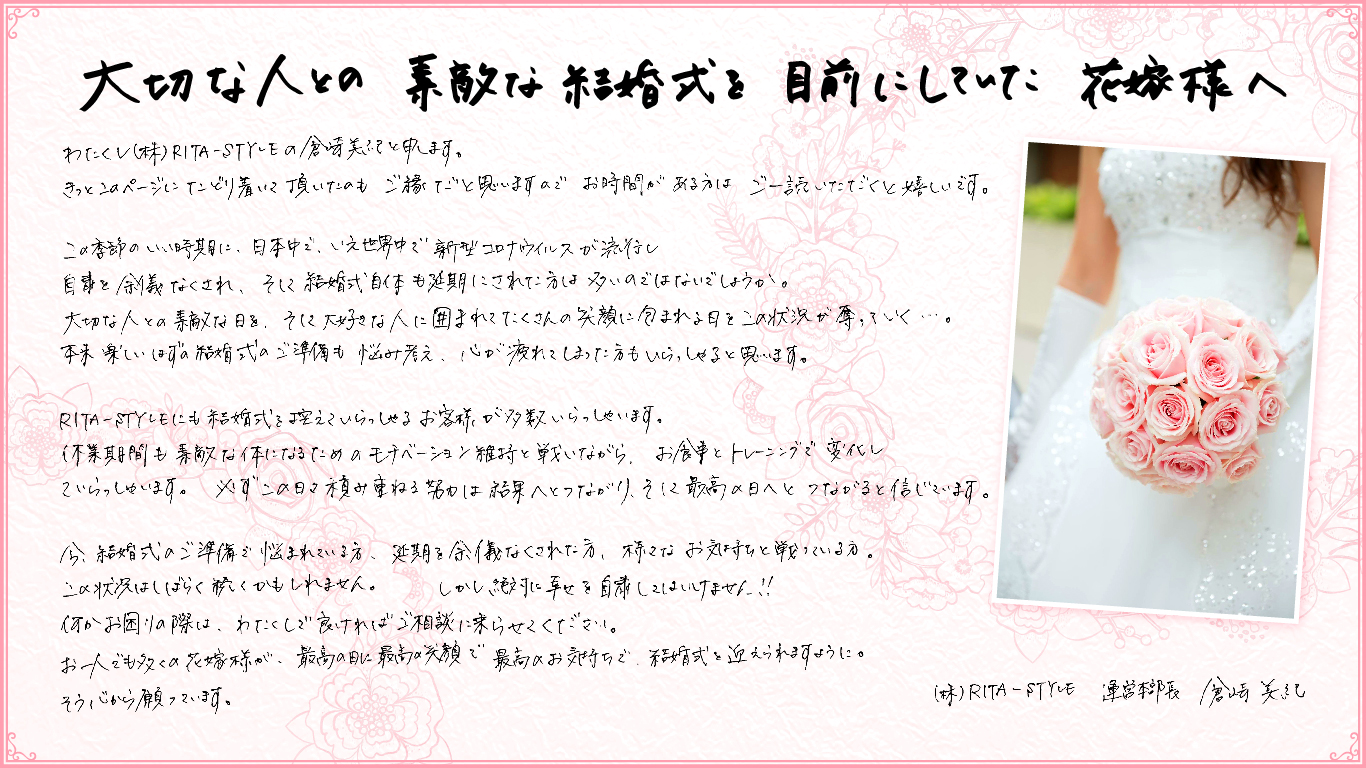 大切な人との 素敵な結婚式を 目前にしていた 花嫁様へ
わたくし(株)RITA-STYLEの倉崎美紀と申します。
きっとこのページにたどり着いて頂いたのも ご縁だと思いますので お時間がある方は ご一読いただくと嬉しいです。
この季節のいい時期に、日本中で、いえ世界中で 新型コロナウイルスが流行し
自粛を余儀なくされ、そして結婚式自体も延期にされた方は多いのではないでしょうか。
大切な人との素敵な日を、そして大好きな人に囲まれてたくさんの笑顔に包まれる日をこの状況が奪っていく…。
本来楽しいはずの結婚式のご準備も 悩み考え、心が疲れてしまった方もいらっしゃると思います。
RITA-STYLEにも結婚式を控えていらっしゃるお客様が多数いらっしゃいます。
休業期間も素敵な体になるためのモチベーション維持と戦いながら、お食事とトレーニングで変化し
ていらっしゃいます。 必ずこの日々積み重ねる努力は結果へとつながり、そして最高の日へとつながると信じています。
今、結婚式のご準備で悩まれている方、延期を余儀なくされた方、様々なお気持ちと戦っている方。
この状況はしばらく続くかもしれません。 しかし絶対に幸せを自粛してはいけません!!
何かお困りの際は、わたくしで良ければご相談に来らせてください。
お一人でも多くの花嫁様が、最高の日に最高の笑顔で 最高のお気持ちで、結婚式を迎えられますように。
そう心から願っています。
(株)RITA-STYLE 運営本部長 倉崎 美紀